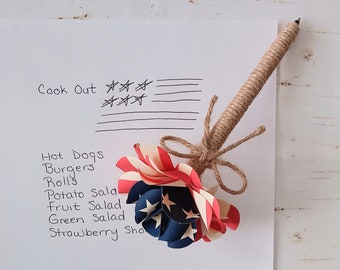 Cook Out
Hot Dogs
Burgers
Rolls
Potato Sala
Fruit Salad
Green Salad
Strawberry Sho